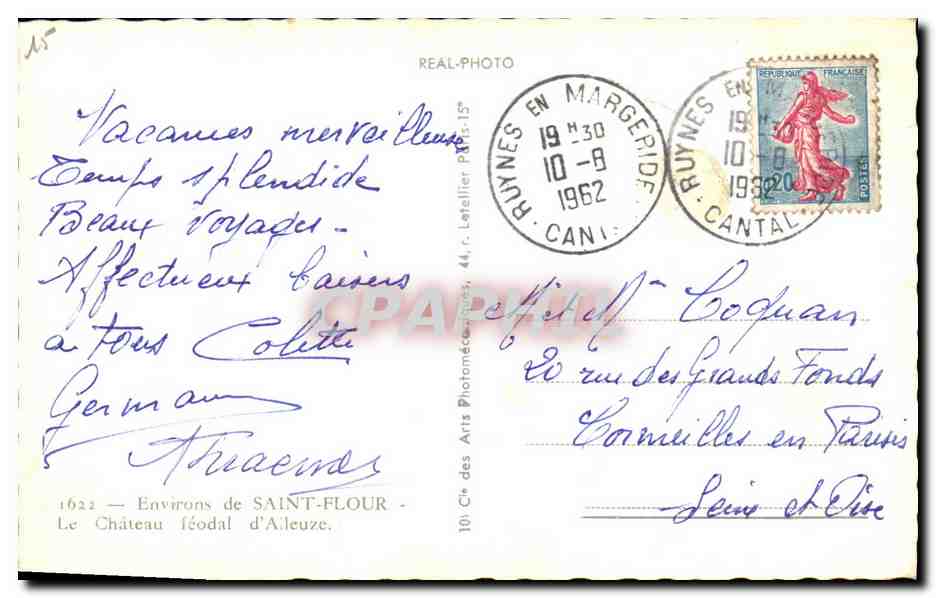 15
REAL-PHOTO
RUYNES EN MARGERIDE
19 H 30
10 - 8
1962
CANT
RUYNES EN M
19 H
10 - 8
1962
CANTAL
REPUBLIQUE FRANÇAISE
0,20
POSTES
Vacances merveilleuses
Temps splendide
Beaux voyages -
Affectueux baisers
à tous Colette
Germain
1622 — Environs de SAINT-FLOUR -
Le Château féodal d'Alleuze.
101 Cie des Arts Photomécaniques, 44, r. Letellier Paris-15e
CPAPHIL
Mr et Mme Coquan
20 rue des Grands Fonds
Cormeilles en Parisis
Seine et Oise